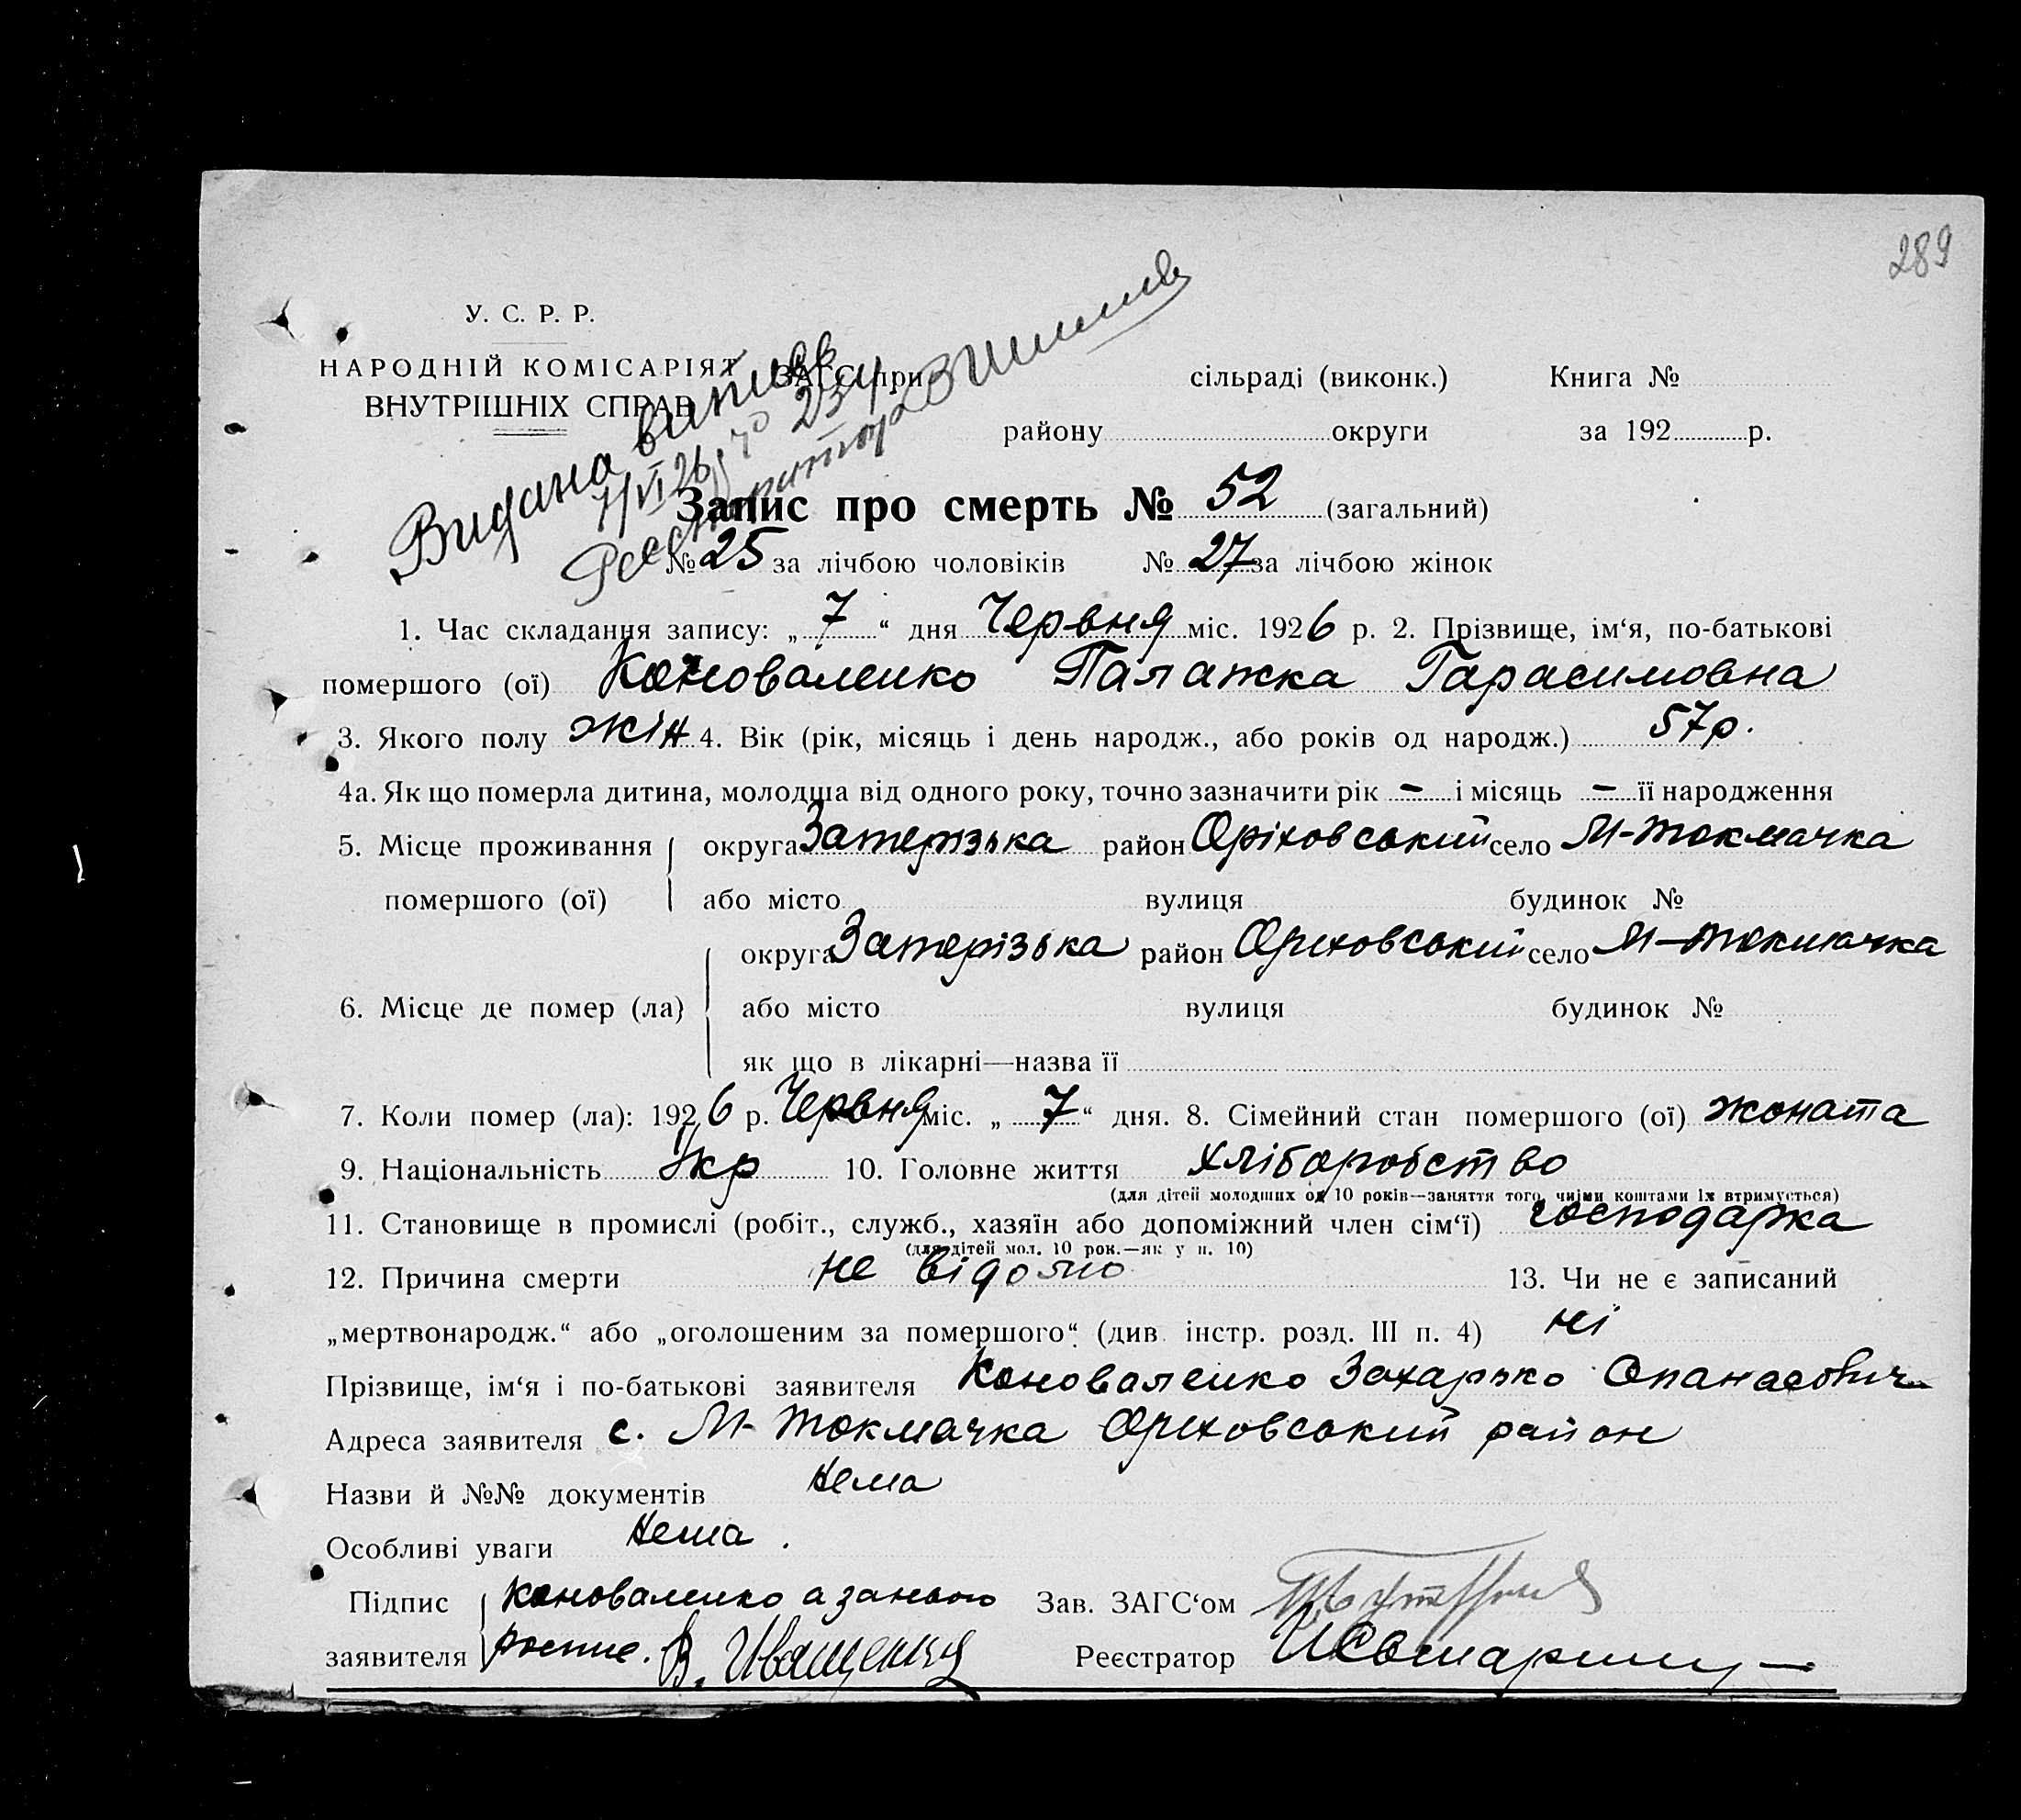 289
У. С. Р. Р.
НАРОДНІЙ КОМІСАРІЯТ
ВНУТРІШНІХ СПРАВ
ЗАГС при сільраді (виконк.) Книга №
району округи за 192 р.
Видана виписв
7/VI 26 р 234
Реєстратор
Запис про смерть № 52 (загальний)
№ 25 за лічбою чоловіків № 27 за лічбою жінок
1. Час складання запису: „ 7 “ дня Червня міс. 1926 р. 2. Прізвище, ім‘я, по-батькові
помершого (ої) Коноваленко Палажка Гарасимовна
3. Якого полу жін 4. Вік (рік, місяць і день народж., або років од народж.) 57р.
4а. Як що померла дитина, молодша від одного року, точно зазначити рік – і місяць – її народження
5. Місце проживання округа Запорізька район Оріховський село М-Токмачка
помершого (ої) або місто вулиця будинок №
округа Запорізька район Ориховський село М-Токмачка
6. Місце де помер (ла) або місто вулиця будинок №
як що в лікарні—назва її
7. Коли помер (ла): 1926 р. Червня міс. „ 7 “ дня. 8. Сімейний стан помершого (ої) жоната
9. Національність Укр 10. Головне життя хліборобство
(для дітей молодших од 10 років—заняття того, чиїми коштами їх втримується)
11. Становище в промислі (робіт., служб., хазяїн або допоміжний член сім‘ї) господарка
(для дітей мол. 10 рок.—як у п. 10)
12. Причина смерти не відомо 13. Чи не є записаний
„мертвонародж.“ або „оголошеним за помершого“ (див. інстр. розд. III п. 4) ні
Прізвище, ім‘я і по-батькові заявителя Коноваленко Захарько Опанасович
Адреса заявителя с. М-Токмачка Ориховський район
Назви й №№ документів Нема
Особливі уваги Нема.
Підпис Коноваленко а за нього Зав. ЗАГС‘ом
заявителя роспис. В. Иващенко Реєстратор